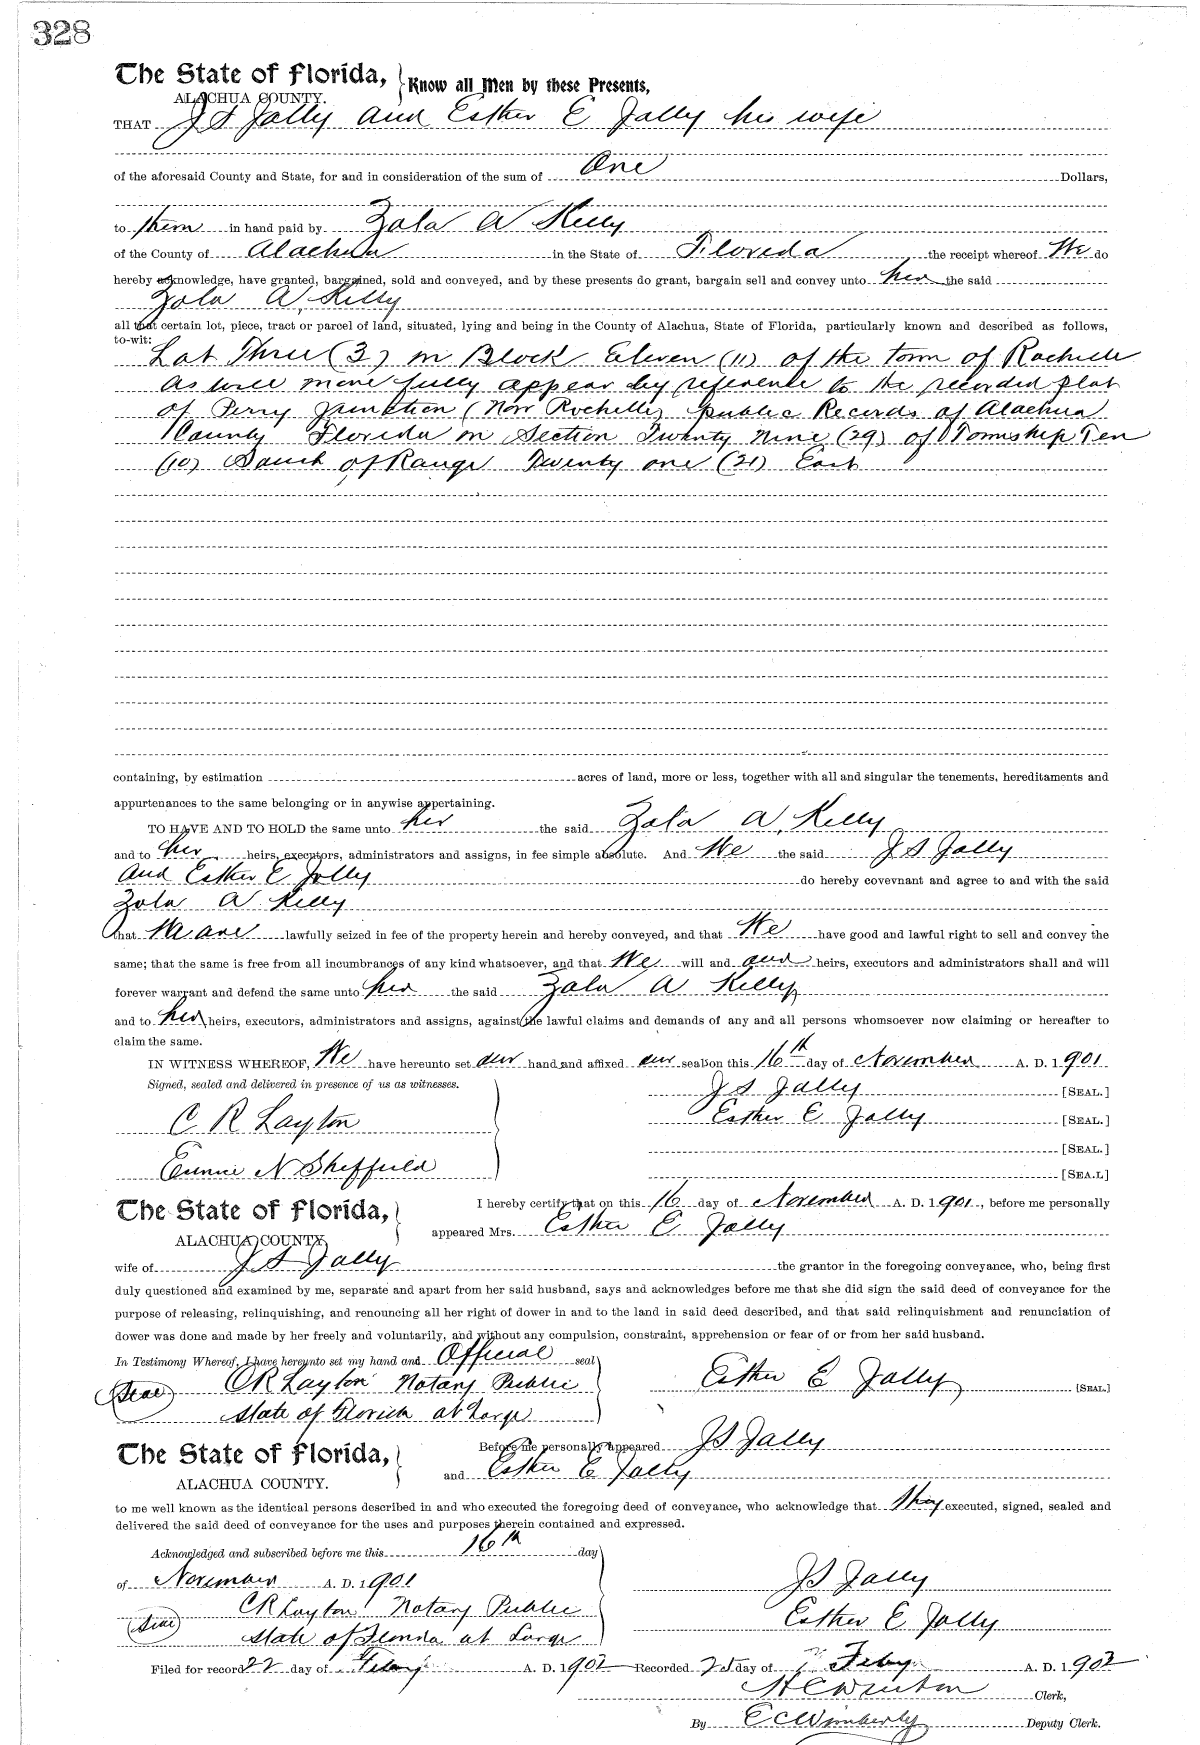 328
The State of Florida,
ALACHUA COUNTY.
Know all Men by these Presents,
THAT J S Jolly and Esther E Jolly his wife
of the aforesaid County and State, for and in consideration of the sum of One Dollars,
to them in hand paid by Zola A Kelly
of the County of Alachua in the State of Florida the receipt whereof We do
hereby acknowledge, have granted, bargained, sold and conveyed, and by these presents do grant, bargain sell and convey unto her the said
Zola A Kelly
all that certain lot, piece, tract or parcel of land, situated, lying and being in the County of Alachua, State of Florida, particularly known and described as follows,
to-wit:
Lot Three (3) in Block Eleven (11) of the town of Rochelle
as will more fully appear by reference to the recorded plat
of Perry Junction (Now Rochelle) public Records of Alachua
County Florida in Section Twenty Nine (29) of Township Ten
(10) South of Range Twenty one (21) East
containing, by estimation acres of land, more or less, together with all and singular the tenements, hereditaments and
appurtenances to the same belonging or in anywise appertaining.
TO HAVE AND TO HOLD the same unto her the said Zola A Kelly
and to her heirs, executors, administrators and assigns, in fee simple absolute. And We the said J S Jolly
and Esther E Jolly do hereby covevnant and agree to and with the said
Zola A Kelly
that We are lawfully seized in fee of the property herein and hereby conveyed, and that We have good and lawful right to sell and convey the
same; that the same is free from all incumbrances of any kind whatsoever, and that We will and our heirs, executors and administrators shall and will
forever warrant and defend the same unto her the said Zola A Kelly
and to her heirs, executors, administrators and assigns, against the lawful claims and demands of any and all persons whomsoever now claiming or hereafter to
claim the same.
IN WITNESS WHEREOF, We have hereunto set our hand and affixed our seal on this 16th day of November A. D. 1901
Signed, sealed and delivered in presence of us as witnesses.
J S Jolly [SEAL.]
Esther E Jolly [SEAL.]
C R Layton
[SEAL.]
Eunice N Sheffield
[SEAL]
The State of Florida,
ALACHUA COUNTY
I hereby certify that on this 16 day of November A. D. 1901, before me personally
appeared Mrs. Esther E Jolly
wife of J S Jolly the grantor in the foregoing conveyance, who, being first
duly questioned and examined by me, separate and apart from her said husband, says and acknowledges before me that she did sign the said deed of conveyance for the
purpose of releasing, relinquishing, and renouncing all her right of dower in and to the land in said deed described, and that said relinquishment and renunciation of
dower was done and made by her freely and voluntarily, and without any compulsion, constraint, apprehension or fear of or from her said husband.
In Testimony Whereof, I have hereunto set my hand and Official seal
(Seal) C R Layton Notary Public
State of Florida at Large
Esther E Jolly [SEAL.]
The State of Florida,
ALACHUA COUNTY.
Before me personally appeared J S Jolly
and Esther E Jolly
to me well known as the identical persons described in and who executed the foregoing deed of conveyance, who acknowledge that they executed, signed, sealed and
delivered the said deed of conveyance for the uses and purposes therein contained and expressed.
Acknowledged and subscribed before me this 16th day
of November A. D. 1901
(Seal) C R Layton Notary Public
State of Florida at Large
J S Jolly
Esther E Jolly
Filed for record 22 day of Feby A. D. 1902 Recorded 25 day of Feby A. D. 1902
H C Denton Clerk,
By E C Wimberly Deputy Clerk.